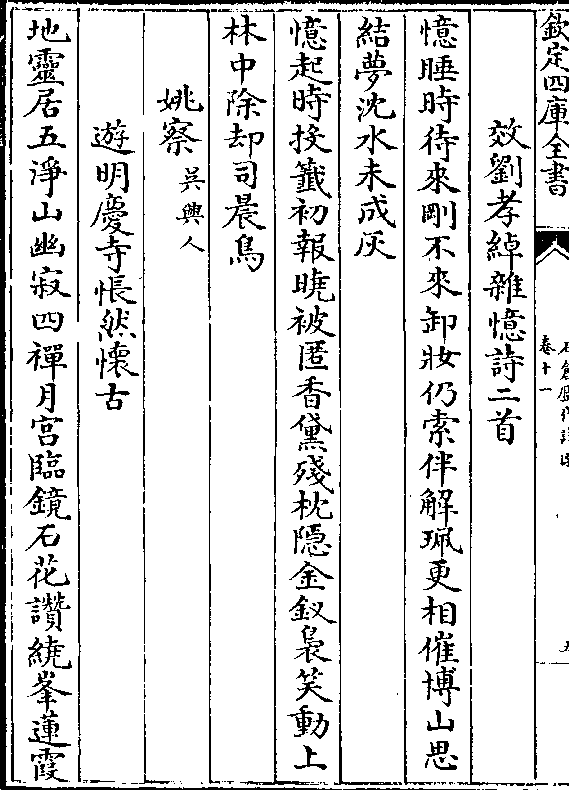 欽定四庫全書
卷十一
效劉孝綽雜憶詩二首
憶睡時待來剛不來卸妝仍索伴解珮更相催博山思
結夢沈水未成灰
憶起時投籤初報曉被匿香黛殘枕隱金釵裊笑動上
林中除却司晨鳥
姚察吳興人
遊明慶寺悵然懷古
地靈居五淨山幽寂四禪月宮臨鏡石花讚繞峯蓮霞